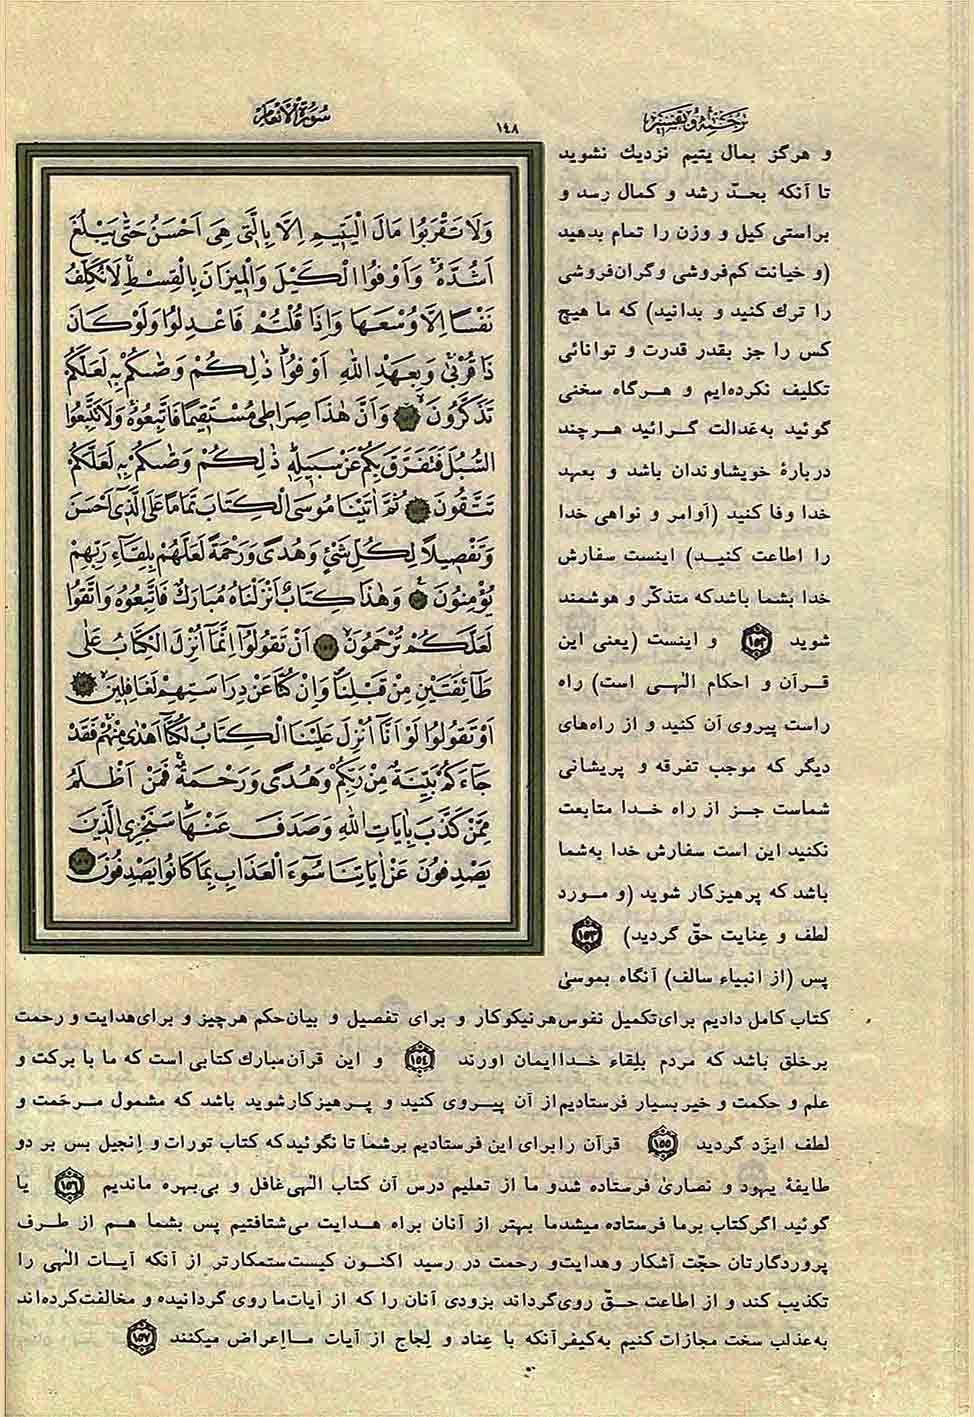 ترجمه و تفسیر
١٤٨
سورة الأنعام
وَلَا تَقْرَبُوا مَالَ الْيَتِيمِ اِلَّا بِالَّتِي هِيَ اَحْسَنُ حَتّٰى يَبْلُغَ
اَشُدَّهُ وَاَوْفُوا الْكَيْلَ وَالْمِيزَانَ بِالْقِسْطِ لَا نُكَلِّفُ
نَفْسًا اِلَّا وُسْعَهَا وَاِذَا قُلْتُمْ فَاعْدِلُوا وَلَوْ كَانَ
ذَا قُرْبٰى وَبِعَهْدِ اللّٰهِ اَوْفُوا ذٰلِكُمْ وَصّٰىكُمْ بِهِ لَعَلَّكُمْ
تَذَكَّرُونَ وَاَنَّ هٰذَا صِرَاطِي مُسْتَقِيمًا فَاتَّبِعُوهُ وَلَا تَتَّبِعُوا
السُّبُلَ فَتَفَرَّقَ بِكُمْ عَنْ سَبِيلِهِ ذٰلِكُمْ وَصّٰىكُمْ بِهِ لَعَلَّكُمْ
تَتَّقُونَ ثُمَّ اٰتَيْنَا مُوسَى الْكِتَابَ تَمَامًا عَلَى الَّذِي اَحْسَنَ
وَتَفْصِيلًا لِكُلِّ شَيْءٍ وَهُدًى وَرَحْمَةً لَعَلَّهُمْ بِلِقَاءِ رَبِّهِمْ
يُؤْمِنُونَ وَهٰذَا كِتَابٌ اَنْزَلْنَاهُ مُبَارَكٌ فَاتَّبِعُوهُ وَاتَّقُوا
لَعَلَّكُمْ تُرْحَمُونَ اَنْ تَقُولُوا اِنَّمَا اُنْزِلَ الْكِتَابُ عَلٰى
طَائِفَتَيْنِ مِنْ قَبْلِنَا وَاِنْ كُنَّا عَنْ دِرَاسَتِهِمْ لَغَافِلِينَ
اَوْ تَقُولُوا لَوْ اَنَّا اُنْزِلَ عَلَيْنَا الْكِتَابُ لَكُنَّا اَهْدٰى مِنْهُمْ فَقَدْ
جَاءَكُمْ بَيِّنَةٌ مِنْ رَبِّكُمْ وَهُدًى وَرَحْمَةٌ فَمَنْ اَظْلَمُ
مِمَّنْ كَذَّبَ بِاٰيَاتِ اللّٰهِ وَصَدَفَ عَنْهَا سَنَجْزِي الَّذِينَ
يَصْدِفُونَ عَنْ اٰيَاتِنَا سُوءَ الْعَذَابِ بِمَا كَانُوا يَصْدِفُونَ
و هرگز بمال یتیم نزدیك نشوید
تا آنکه بحدّ رشد و کمال رسد و
براستی کیل و وزن را تمام بدهید
(و خیانت کم‌فروشی وگران‌فروشی
را ترك کنید و بدانید) که ما هیچ
کس را جز بقدر قدرت و توانائی
تکلیف نکرده‌ایم و هرگاه سخنی
گوئید به‌عَدالت گرائید هرچند
دربارهٔ خویشاوندان باشد و بعهد
خدا وفا کنید (اَوامر و نواهی خدا
را اطاعت کنید) اینست سفارش
خدا بشما باشدکه متذکّر و هوشمند
شوید ١٥٢ و اینست (یعنی این
قرآن و احکام الٰهی است) راه
راست پیروی آن کنید و از راه‌های
دیگر که موجب تفرقه و پریشانی
شماست جز از راه خدا متابعت
نکنید این است سفارش خدا به‌شما
باشد که پرهیزکار شوید (و مورد
لطف و عِنایت حقّ گردید) ١٥٣
پس (از انبیاء سالف) آنگاه بموسیٰ
کتاب کامل دادیم برای‌تکمیل نفوس‌هرنیکوکار و برای تفصیل و بیان‌حکم هرچیز و برای‌هدایت و رحمت
برخلق باشد که مردم بلِقاء خداایمان اورند ١٥٤ و این قرآن‌مبارك کتابی است که ما با برکت و
علم و حکمت و خیربسیار فرستادیم‌از آن پیروی کنید و پرهیزکارشوید باشد که مشمول مرحَمت و
لطف ایزَد گردید ١٥٥ قرآن رابرای این فرستادیم برشما تا نگوئیدکه کتاب تورات و اِنجیل بس بر دو
طایفهٔ یهود و نصاریٰ فرستاده شدو ما از تعلیم درس آن کتاب الٰهی غافل و بی‌بهره ماندیم ١٥٦ یا
گوئید اگرکتاب برما فرستاده میشدما بهتر از آنان براه هدایت می‌شتافتیم پس بشما هم از طرف
پروردگارتان حجّت آشکار وهدایت‌و رحمت در رسید اکنون کیست‌ستمکارتر از آنکه آیات الٰهی را
تکذیب کند و از اطاعت حقّ روی‌گرداند بزودی آنان را که از آیات‌ما روی گردانیده و مخالفت‌کرده‌اند
به‌عذلب سخت مجازات کنیم به‌کیفرآنکه با عِناد و لِجاج از آیات مااِعراض میکنند ١٥٧